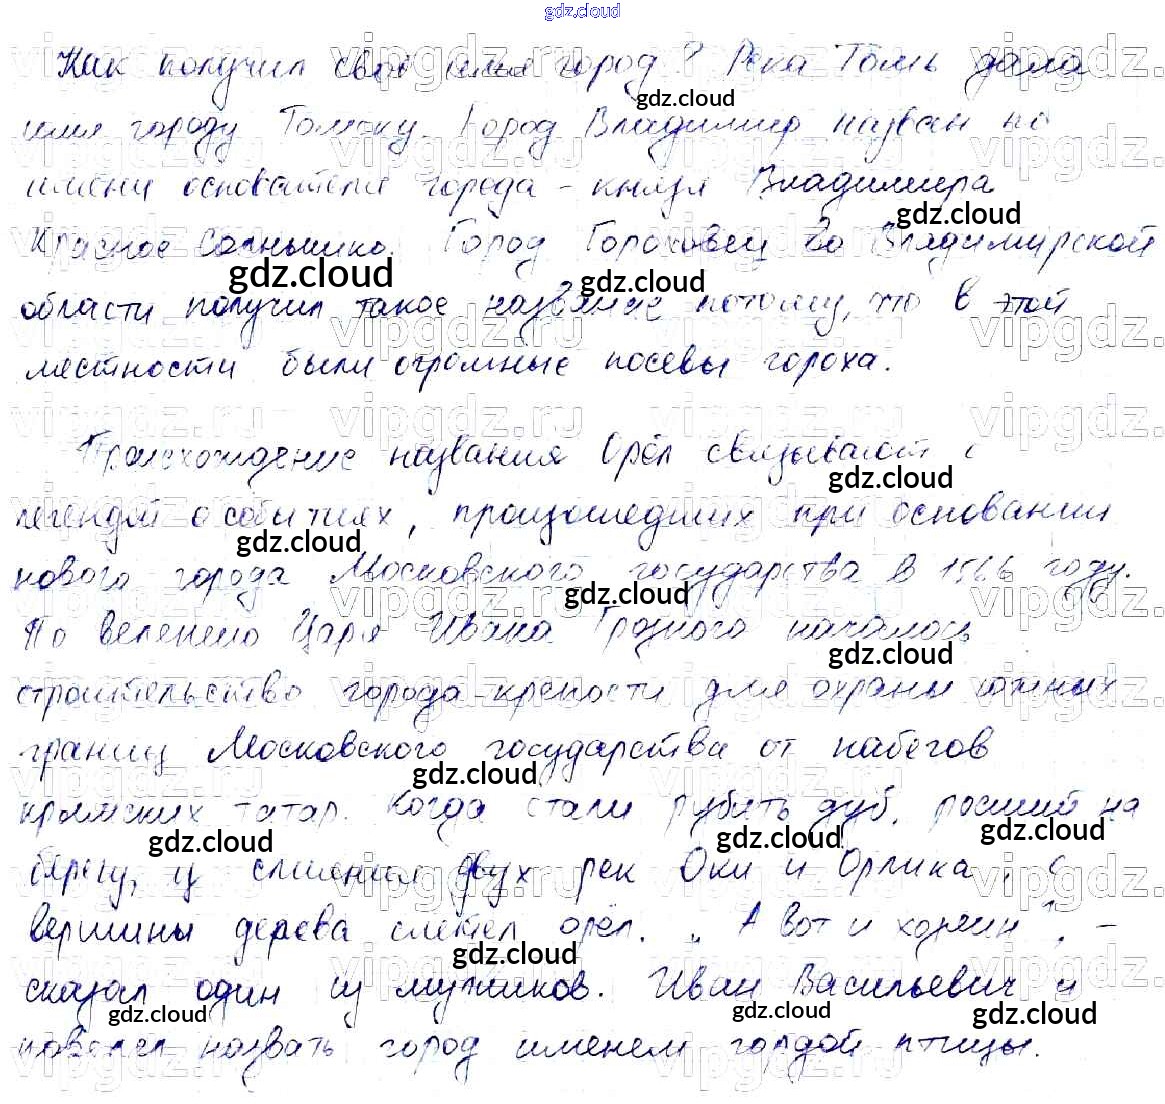 gdz.cloud
Как получил своё имя город? Река Томь дала
имя городу Томску. Город Владимир назван по
имени основателя города - князя Владимира
Красное Солнышко. Город Гороховец во Владимирской
области получил такое название потому, что в этой
местности были огромные посевы гороха.
Происхождение названия Орёл связывают с
легендой о событиях, произошедших при основании
нового города Московского государства в 1566 году.
По велению Царя Ивана Грозного началось
строительство города-крепости для охраны южных
границ Московского государства от набегов
крымских татар. Когда стали рубить дуб, росший на
берегу, у слияния двух рек Оки и Орлика, с
вершины дерева слетел орёл. „А вот и хозяин", -
сказал один из мужиков. Иван Васильевич и
повелел назвать город именем гордой птицы.